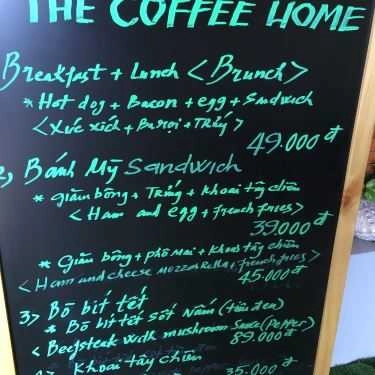 THE COFFEE HOME
Breakfast + Lunch <Brunch>
* Hot dog + Bacon + egg + Sandwich
<Xúc xích + Ba rọi + Trứng>
49.000đ
2> Bánh Mỳ Sandwich
* giăm bông + Trứng + Khoai tây chiên
<Ham and egg + french fries>
39.000đ
* Giăm bông + phô mai + Khoai tây chiên
<Ham and cheese mozzarella + french fries>
45.000đ
3> Bò bít tết
* Bò bít tết sốt Nấm (tiêu đen)
<Beefsteak with mushroom Sauce (Pepper)
89.000đ
Khoai tây chiên
35.000đ